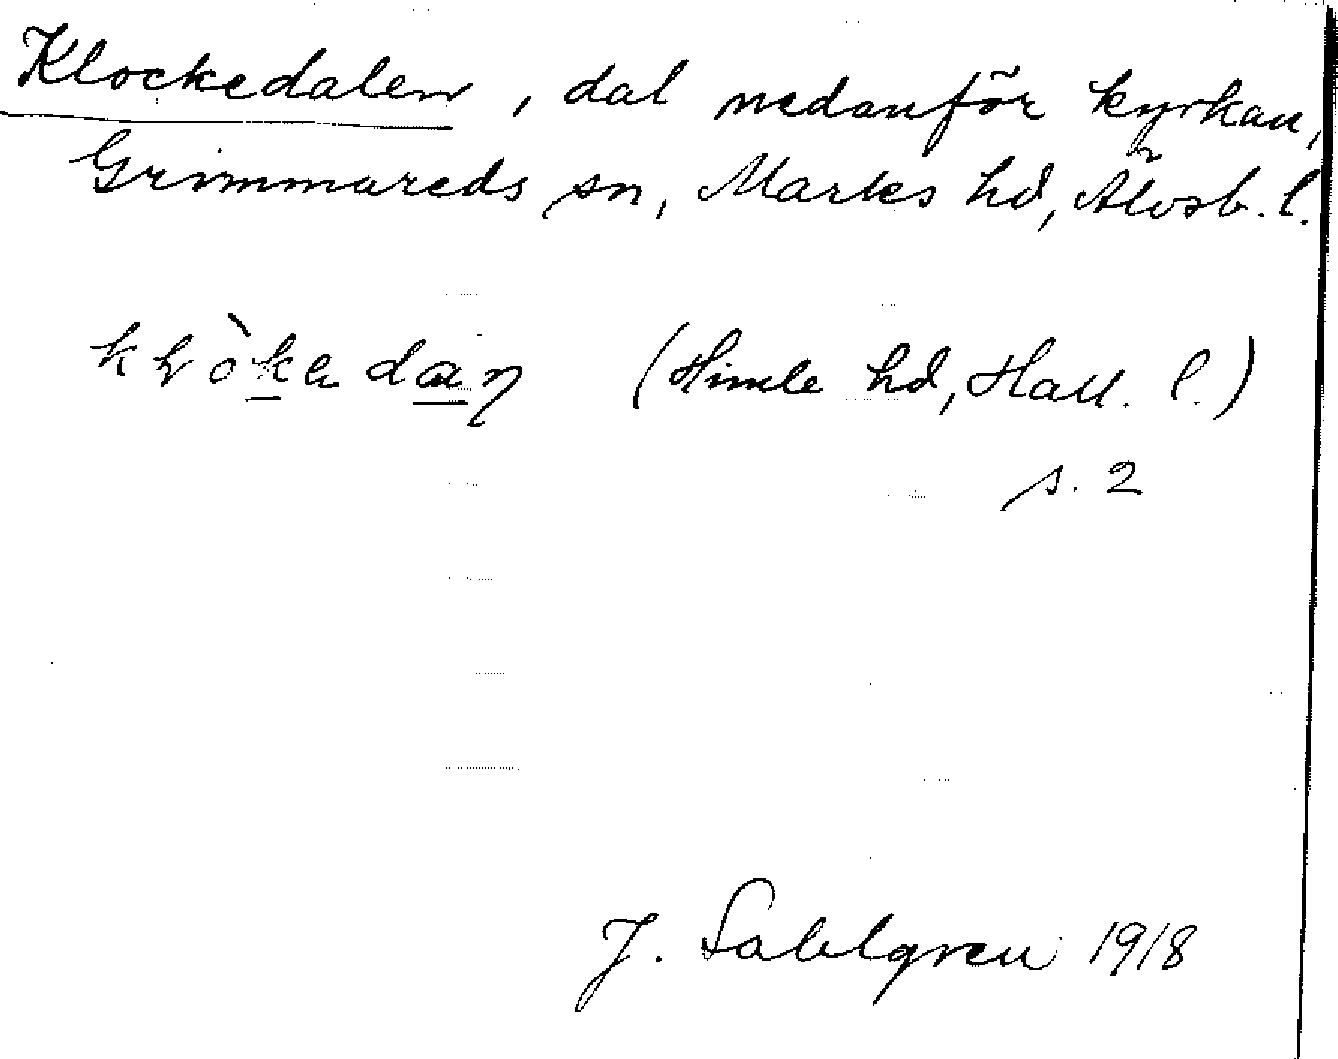 Klockedalen, dal nedanför kyrkan,
Grimmareds sn, Marks hd, Älvsb. l.
(Himle hd, Hall. l.)
s. 2
J. Sahlgren 1918